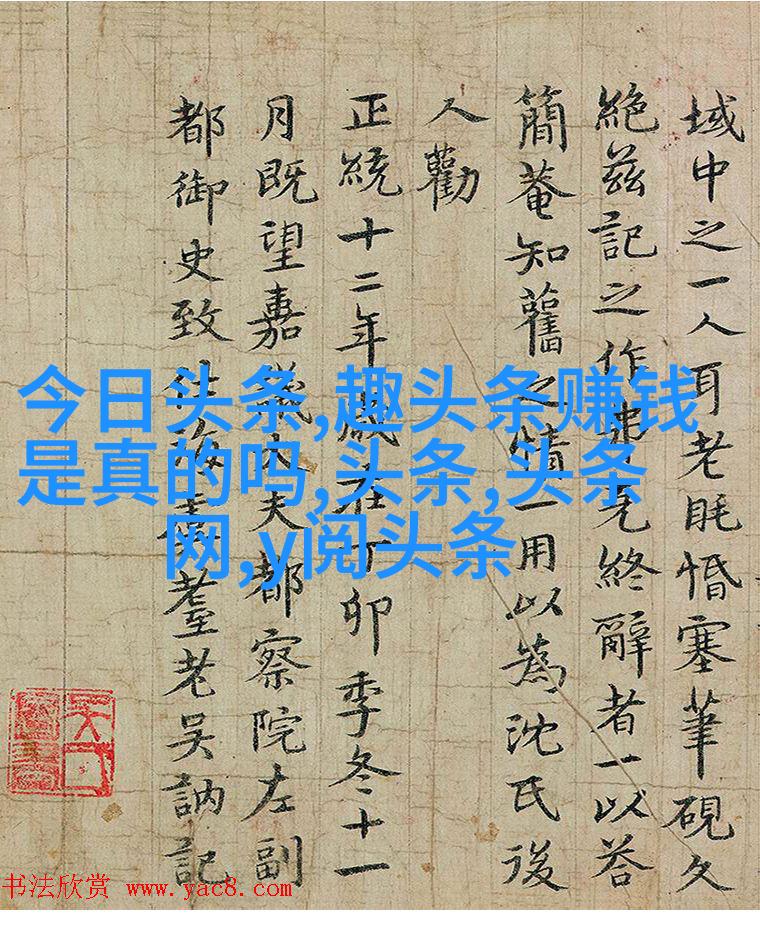 域中之一人耳老眊惛塞筆硯久
絶兹記之作弗克終辭者一以荅
簡菴知舊之情一用以為沈氏後
人勸
正統十二年歲在丁卯季冬十一
月既望嘉議大夫都察院左副
都御史致仕海虞耋老吳訥記
今日头条,趣头条赚钱
是真的吗,头条,头条
网,y阅头条
书法欣赏 www.yac8.com